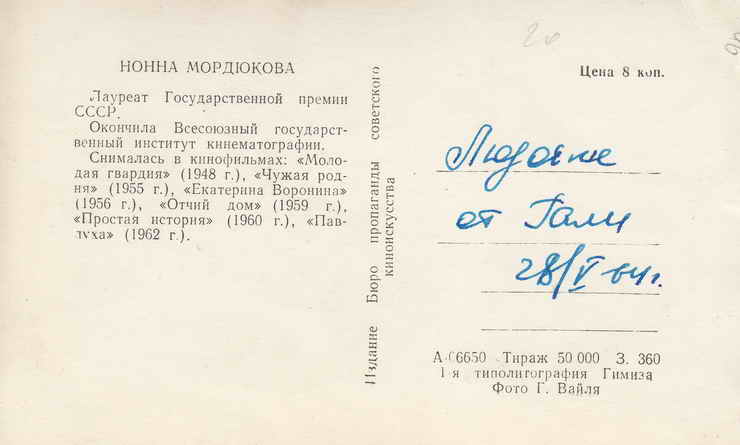 НОННА МОРДЮКОВА
Лауреат Государственной премии
СССР.
Окончила Всесоюзный государст-
венный институт кинематографии.
Снималась в кинофильмах: «Моло-
дая гвардия» (1948 г.), «Чужая род-
ня» (1955 г.), «Екатерина Воронина»
(1956 г.), «Отчий дом» (1959 г.),
«Простая история» (1960 г.), «Пав-
луха» (1962 г.).
Издание Бюро пропаганды советского
киноискусства
Цена 8 коп.
Людочке
от Гали
28/V-64г.
А-06650 Тираж 50 000 З. 360
1-я типолитография Гимиза
Фото Г. Вайля